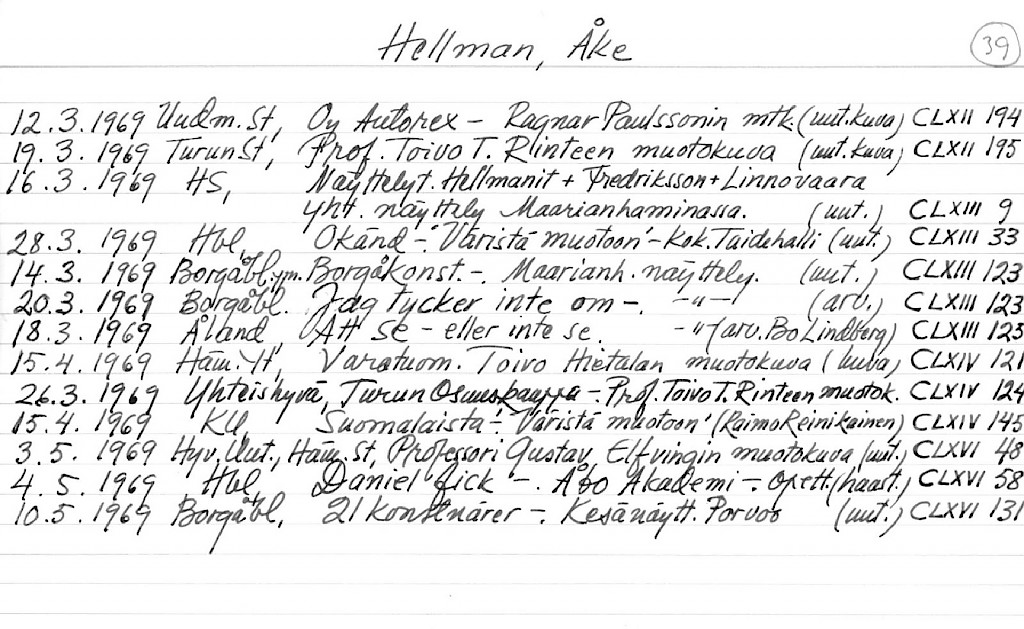 Hellman, Åke 39
12.3.1969 Uudm. St, Oy Autorex – Ragnar Paulssonin mtk. (uut.kuva) CLXII 194
19.3.1969 Turun St, Prof. Toivo T. Rinteen muotokuva (uut.kuva) CLXII 195
16.3.1969 HS, Näyttelyt. Hellmanit + Fredriksson + Linnovaara
yht. näyttely Maarianhaminassa. (uut.) CLXIII 9
28.3.1969 Hbl, Okänd –. 'Väristä muotoon' – Kok. Taidehalli (uut.) CLXIII 33
14.3.1969 Borgåbl. ym. Borgåkonst. –. Maarianh. näyttely. (uut.) CLXIII 123
20.3.1969 Borgåbl. Jag tycker inte om –. –"– (arv.) CLXIII 123
18.3.1969 Åland, Att se – eller inte se. –"– (arv. Bo Lindberg) CLXIII 123
15.4.1969 Häm. Yt, Varatuom. Toivo Hietalan muotokuva (kuva) CLXIV 121
26.3.1969 Yhteishyvä, Turun Osuuskauppa –. Prof. Toivo T. Rinteen muotok. CLXIV 124
15.4.1969 KU, Suomalaista –. 'Väristä muotoon' (Raimo Reinikainen) CLXIV 145
3.5.1969 Hyv. Uut., Häm. St, Professori Gustav Elfvingin muotokuva (uut.) CLXVI 48
4.5.1969 Hbl, Daniel fick –. Åbo Akademi –. Opett. (haast.) CLXVI 58
10.5.1969 Borgåbl, 21 konstnärer –. Kesänäytt. Porvoo (uut.) CLXVI 131